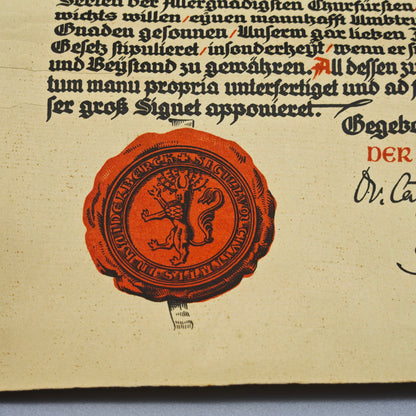 Serien der Allergnädigsten Churfürsten
wichts willen/ eynen mannhafft Umbtr
Gnaden gesonnen/ Unserm gar lieben
Gesetz stipulieret/ insonderheyt/ wenn er
und Beystand zu gewähren. All dessen zu
tum manu propria unterfertiget und ad
ser groß Signet apponieret.
Gegeb
DER
Dr. Ca